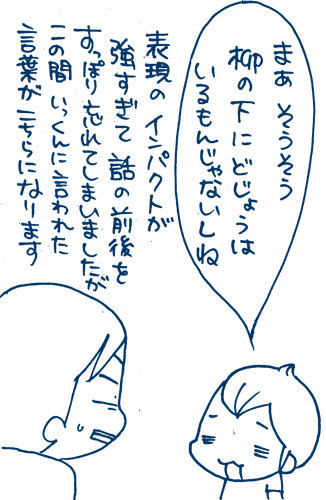 まぁ そうそう
柳の下にどじょうは
いるもんじゃないしね
表現のインパクトが
強すぎて 話の前後を
すっぽり忘れてしまいましたが
この間 いっくんに言われた
言葉がこちらになります